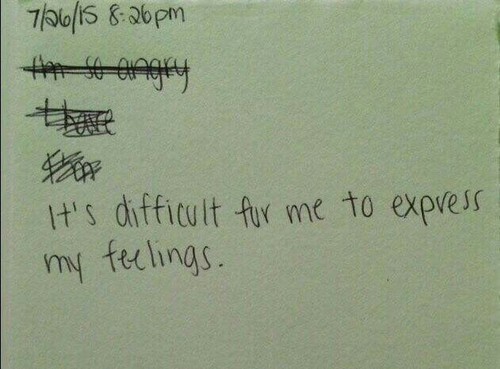 7/26/15 8:26pm
I'm so angry
I have
It's difficult for me to express
my feelings.